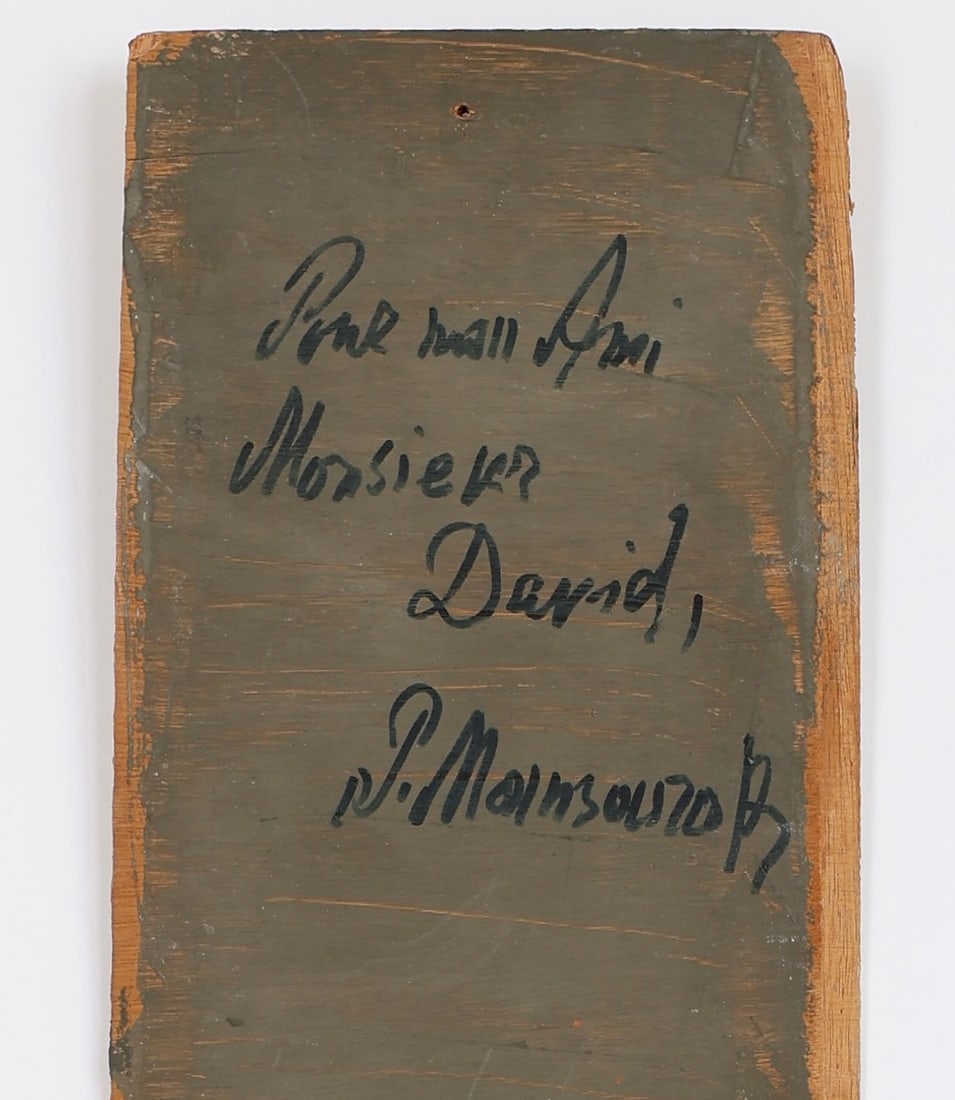 Pour mon Ami
Monsieur
David,
P. Mansouroff